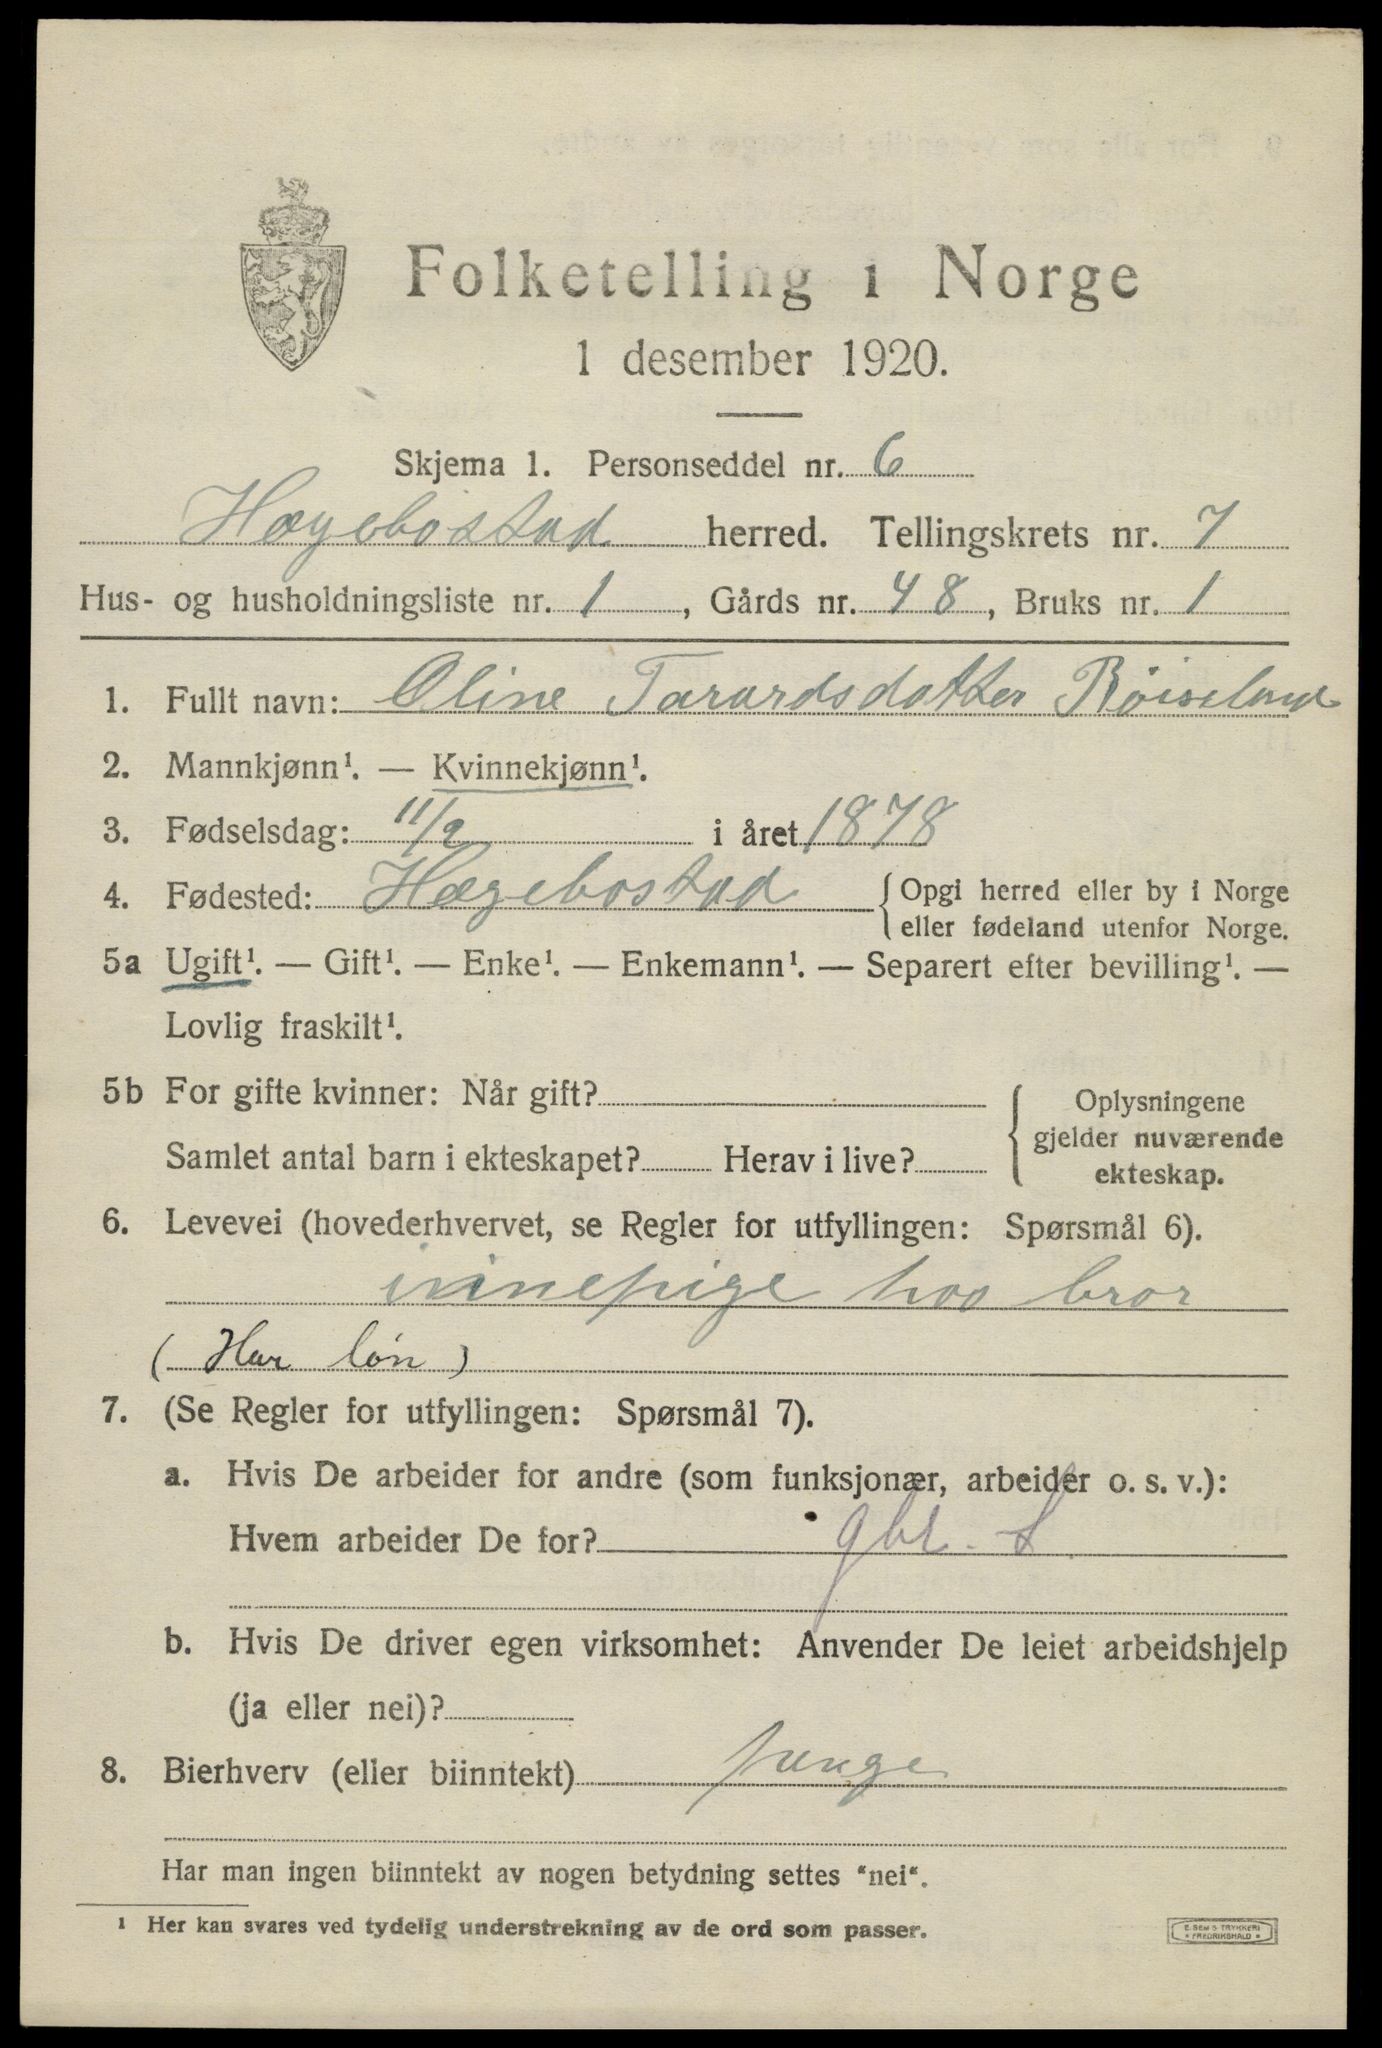 Folketelling i Norge
1 desember 1920.
Skjema 1. Personseddel nr. 6
Hægebostad herred. Tellingskrets nr. 7
Hus- og husholdningsliste nr. 1, Gårds nr. 48, Bruks nr. 1
1. Fullt navn: Oline Tarardsdatter Røiseland
2. Mannkjønn¹. — Kvinnekjønn¹.
3. Fødselsdag: 11/2 i året 1878
4. Fødested: Hægebostad { Opgi herred eller by i Norge
eller fødeland utenfor Norge.
5a Ugift¹. — Gift¹. — Enke¹. — Enkemann¹. — Separert efter bevilling¹. —
Lovlig fraskilt¹.
5b For gifte kvinner: Når gift?
Samlet antal barn i ekteskapet? Herav i live?
{ Oplysningene
gjelder nuværende
ekteskap.
6. Levevei (hovederhvervet, se Regler for utfyllingen: Spørsmål 6).
innepige hos bror
(Har løn)
7. (Se Regler for utfyllingen: Spørsmål 7).
a. Hvis De arbeider for andre (som funksjonær, arbeider o. s. v.):
Hvem arbeider De for? gbr. S
b. Hvis De driver egen virksomhet: Anvender De leiet arbeidshjelp
(ja eller nei)?
8. Bierhverv (eller biinntekt)
Har man ingen biinntekt av nogen betydning settes "nei".
¹ Her kan svares ved tydelig understrekning av de ord som passer.
E. SEM'S TRYKKERI
* FREDRIKSHALD *